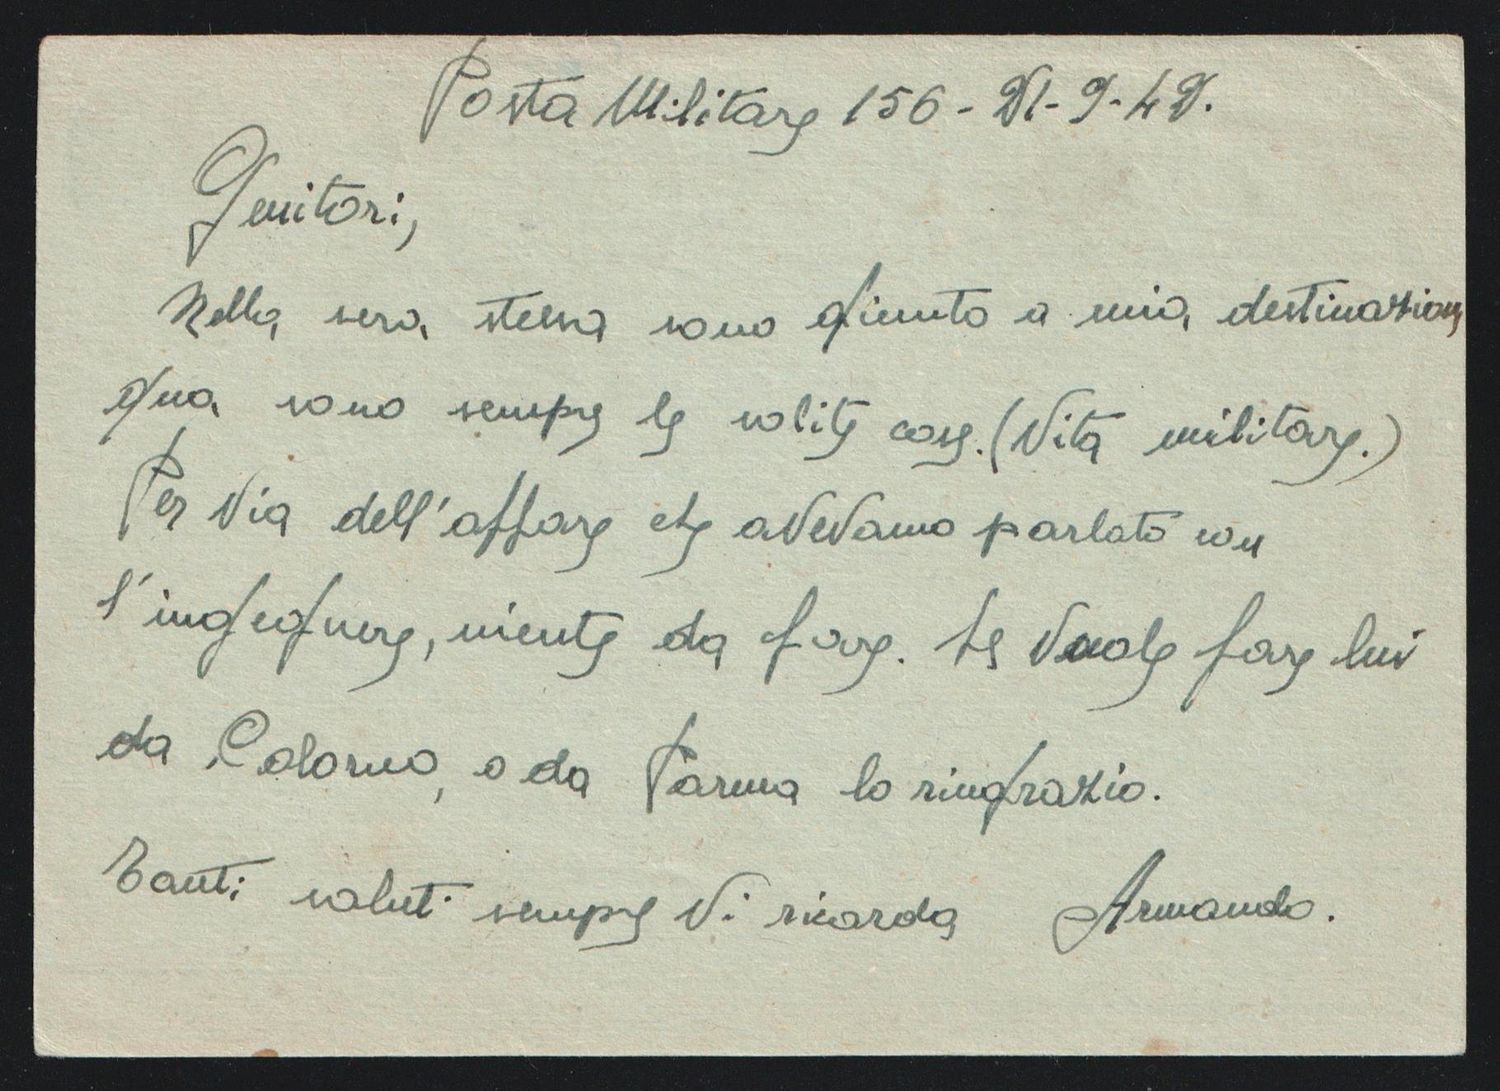 Posta Militare 156 - 21-9-42.
Genitori,
Nella sera stessa sono giunto a mia destinazione
qua sono sempre le solite cose. (Vita militare.)
Per via dell'affare che avevamo parlato con
l'ingegnere, niente da fare. Se vuole fare lui
da Colorno, o da Parma lo ringrazio.
Tanti saluti sempre vi ricorda Armando.